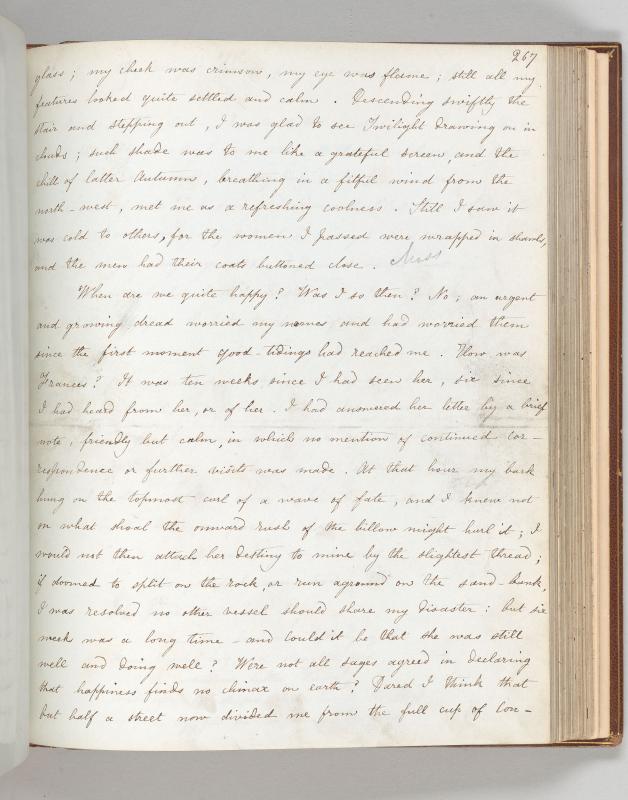 267
glass; my cheek was crimson, my eye was flame; still all my
features looked quite settled and calm. Descending swiftly the
stair and stepping out, I was glad to see Twilight drawing on in
clouds; such shade was to me like a grateful screen, and the
chill of latter Autumn, breathing in a fitful wind from the
north-west, met me as a refreshing coolness. Still I saw it
was cold to others, for the women I passed were wrapped in shawls,
and the men had their coats buttoned close.
When are we quite happy? Was I so then? No; an urgent
and growing dread worried my nerves and had worried them
since the first moment good-tidings had reached me. How was
Frances? It was ten weeks since I had seen her, six since
I had heard from her, or of her. I had answered her letter by a brief
note, friendly but calm, in which no mention of continued cor-
respondence or further visits was made. At that hour my bark
hung on the topmost curl of a wave of fate, and I knew not
on what shoal the onward rush of the billow might hurl it; I
would not then attach her destiny to mine by the slightest thread;
if doomed to split on the rock, or run aground on the sand-bank,
I was resolved no other vessel should share my disaster: but six
weeks was a long time - and could it be that she was still
well and doing well? Were not all sages agreed in declaring
that happiness finds no climax on earth? Dared I think that
but half a street now divided me from the full cup of con-